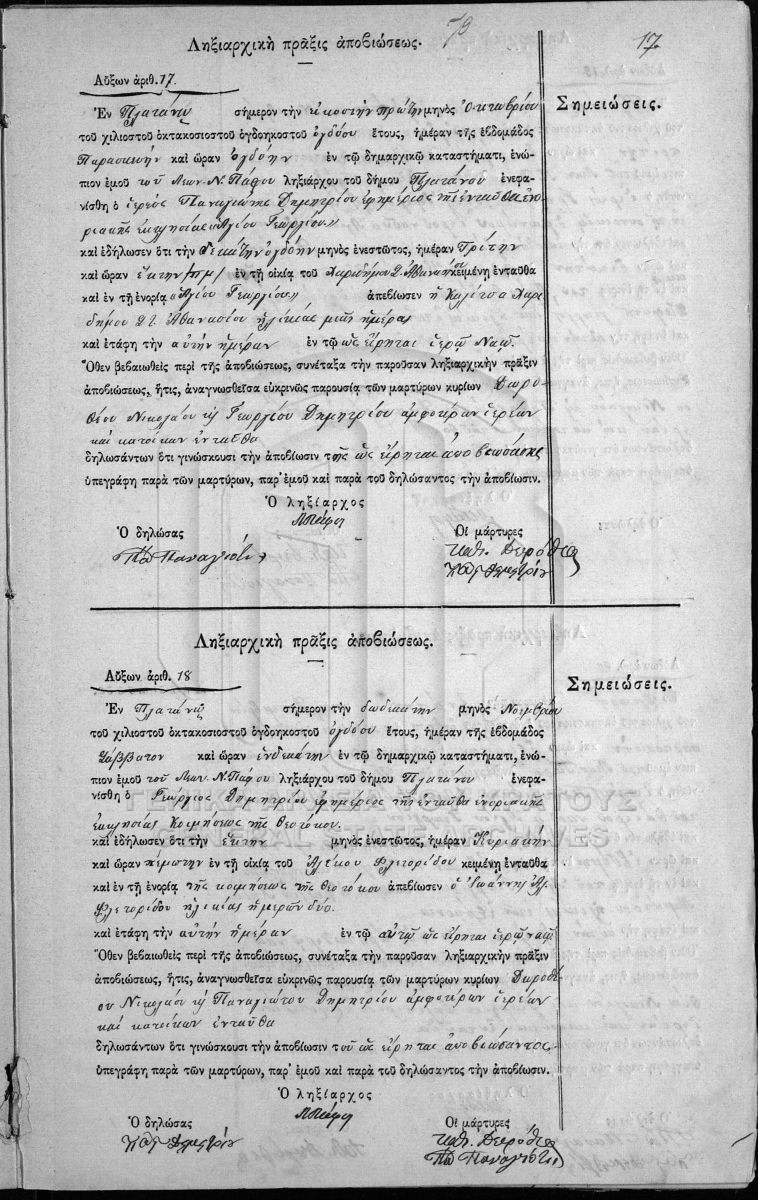 79
17
Ληξιαρχικὴ πρᾶξις ἀποβιώσεως.
Αὔξων ἀριθ. 17.
Σημειώσεις.
Ἐν Πλατάνῳ σήμερον τὴν εἰκοστὴν πρώτην μηνὸς Ὀκτωβρίου
τοῦ χιλιοστοῦ ὀκτακοσιοστοῦ ὀγδοηκοστοῦ ὀγδόου ἔτους, ἡμέραν τῆς ἑβδομάδος
Παρασκευὴν καὶ ὥραν ὀγδόην ἐν τῷ δημαρχικῷ καταστήματι, ἐνώ-
πιον ἐμοῦ τοῦ Λεων. Ν. Πάφου ληξιάρχου τοῦ δήμου Πλατάνου ἐνεφα-
νίσθη ὁ ἱερεὺς Παναγιώτης Δημητρίου ἐφημέριος τῆς ἐνταῦθα ἐνο
ριακῆς ἐκκλησίας Ἁγίου Γεωργίου
καὶ ἐδήλωσεν ὅτι τὴν δεκάτην ὀγδόην μηνὸς ἐνεστῶτος, ἡμέραν Τρίτην
καὶ ὥραν ἕκτην π μ ἐν τῇ οἰκίᾳ τοῦ Χαριδήμου Δ. Ἀθανασίου κειμένῃ ἐνταῦθα
καὶ ἐν τῇ ἐνορίᾳ Ἁγίου Γεωργίου ἀπεβίωσεν ἡ Καλίτσα Χαρι
δήμου Δ. Ἀθανασίου ἡλικίας μιᾶς ἡμέρας
καὶ ἐτάφη τὴν αὐτὴν ἡμέραν ἐν τῷ ὡς εἴρηται ἱερῷ Ναῷ.
Ὅθεν βεβαιωθεὶς περὶ τῆς ἀποβιώσεως, συνέταξα τὴν παροῦσαν ληξιαρχικὴν πρᾶξιν
ἀποβιώσεως, ἥτις, ἀναγνωσθεῖσα εὐκρινῶς παρουσίᾳ τῶν μαρτύρων κυρίων Δωρο-
θέου Νικολάου καὶ Γεωργίου Δημητρίου ἀμφοτέρων ἱερέων
καὶ κατοίκων ἐνταῦθα
δηλωσάντων ὅτι γινώσκουσι τὴν ἀποβίωσιν τῆς ὡς εἴρηται ἀποβιωσάσης
ὑπεγράφη παρὰ τῶν μαρτύρων, παρ' ἐμοῦ καὶ παρὰ τοῦ δηλώσαντος τὴν ἀποβίωσιν.
Ὁ ληξίαρχος
Λ Πάφος
Ὁ δηλώσας
Οἱ μάρτυρες
Ληξιαρχικὴ πρᾶξις ἀποβιώσεως.
Αὔξων ἀριθ. 18
Σημειώσεις.
Ἐν Πλατάνῳ σήμερον τὴν δωδεκάτην μηνὸς Νοεμβρίου
τοῦ χιλιοστοῦ ὀκτακοσιοστοῦ ὀγδοηκοστοῦ ὀγδόου ἔτους, ἡμέραν τῆς ἑβδομάδος
Σάββατον καὶ ὥραν ἑνδεκάτην ἐν τῷ δημαρχικῷ καταστήματι, ἐνώ-
πιον ἐμοῦ τοῦ Λεων. Ν. Πάφου ληξιάρχου τοῦ δήμου Πλατάνου ἐνεφα-
νίσθη ὁ Γεώργιος Δημητρίου ἐφημέριος τῆς ἐνταῦθα ἐνοριακῆς
ἐκκλησίας Κοιμήσεως τῆς Θεοτόκου.
καὶ ἐδήλωσεν ὅτι τὴν ἕκτην μηνὸς ἐνεστῶτος, ἡμέραν Κυριακὴν
καὶ ὥραν πέμπτην ἐν τῇ οἰκίᾳ τοῦ Ἀλέκου Φλετορίδου κειμένῃ ἐνταῦθα
καὶ ἐν τῇ ἐνορίᾳ τῆς κοιμήσεως τῆς Θεοτόκου ἀπεβίωσεν ὁ Ἰωάννης Ἀλ.
Φλετορίδου ἡλικίας ἡμερῶν δύο.
καὶ ἐτάφη τὴν αὐτὴν ἡμέραν ἐν τῷ αὐτῷ ὡς εἴρηται ἱερῷ ναῷ
Ὅθεν βεβαιωθεὶς περὶ τῆς ἀποβιώσεως, συνέταξα τὴν παροῦσαν ληξιαρχικὴν πρᾶξιν
ἀποβιώσεως, ἥτις, ἀναγνωσθεῖσα εὐκρινῶς παρουσίᾳ τῶν μαρτύρων κυρίων Δωροθέ
ου Νικολάου καὶ Παναγιώτου Δημητρίου ἀμφοτέρων ἱερέων
καὶ κατοίκων ἐνταῦθα
δηλωσάντων ὅτι γινώσκουσι τὴν ἀποβίωσιν τοῦ ὡς εἴρηται ἀποβιώσαντος
ὑπεγράφη παρὰ τῶν μαρτύρων, παρ' ἐμοῦ καὶ παρὰ τοῦ δηλώσαντος τὴν ἀποβίωσιν.
Ὁ ληξίαρχος
Λ Πάφος
Ὁ δηλώσας
Οἱ μάρτυρες
ΓΕΝΙΚΑ ΑΡΧΕΙΑ ΤΟΥ ΚΡΑΤΟΥΣ
GENERAL STATE ARCHIVES